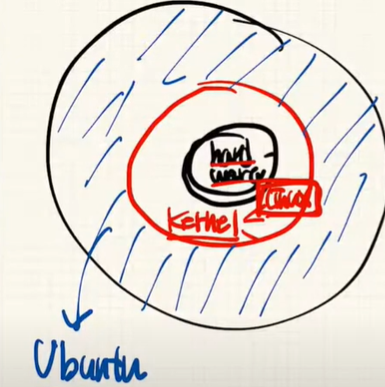 hard
ware
Linux
Kernel
Ubuntu